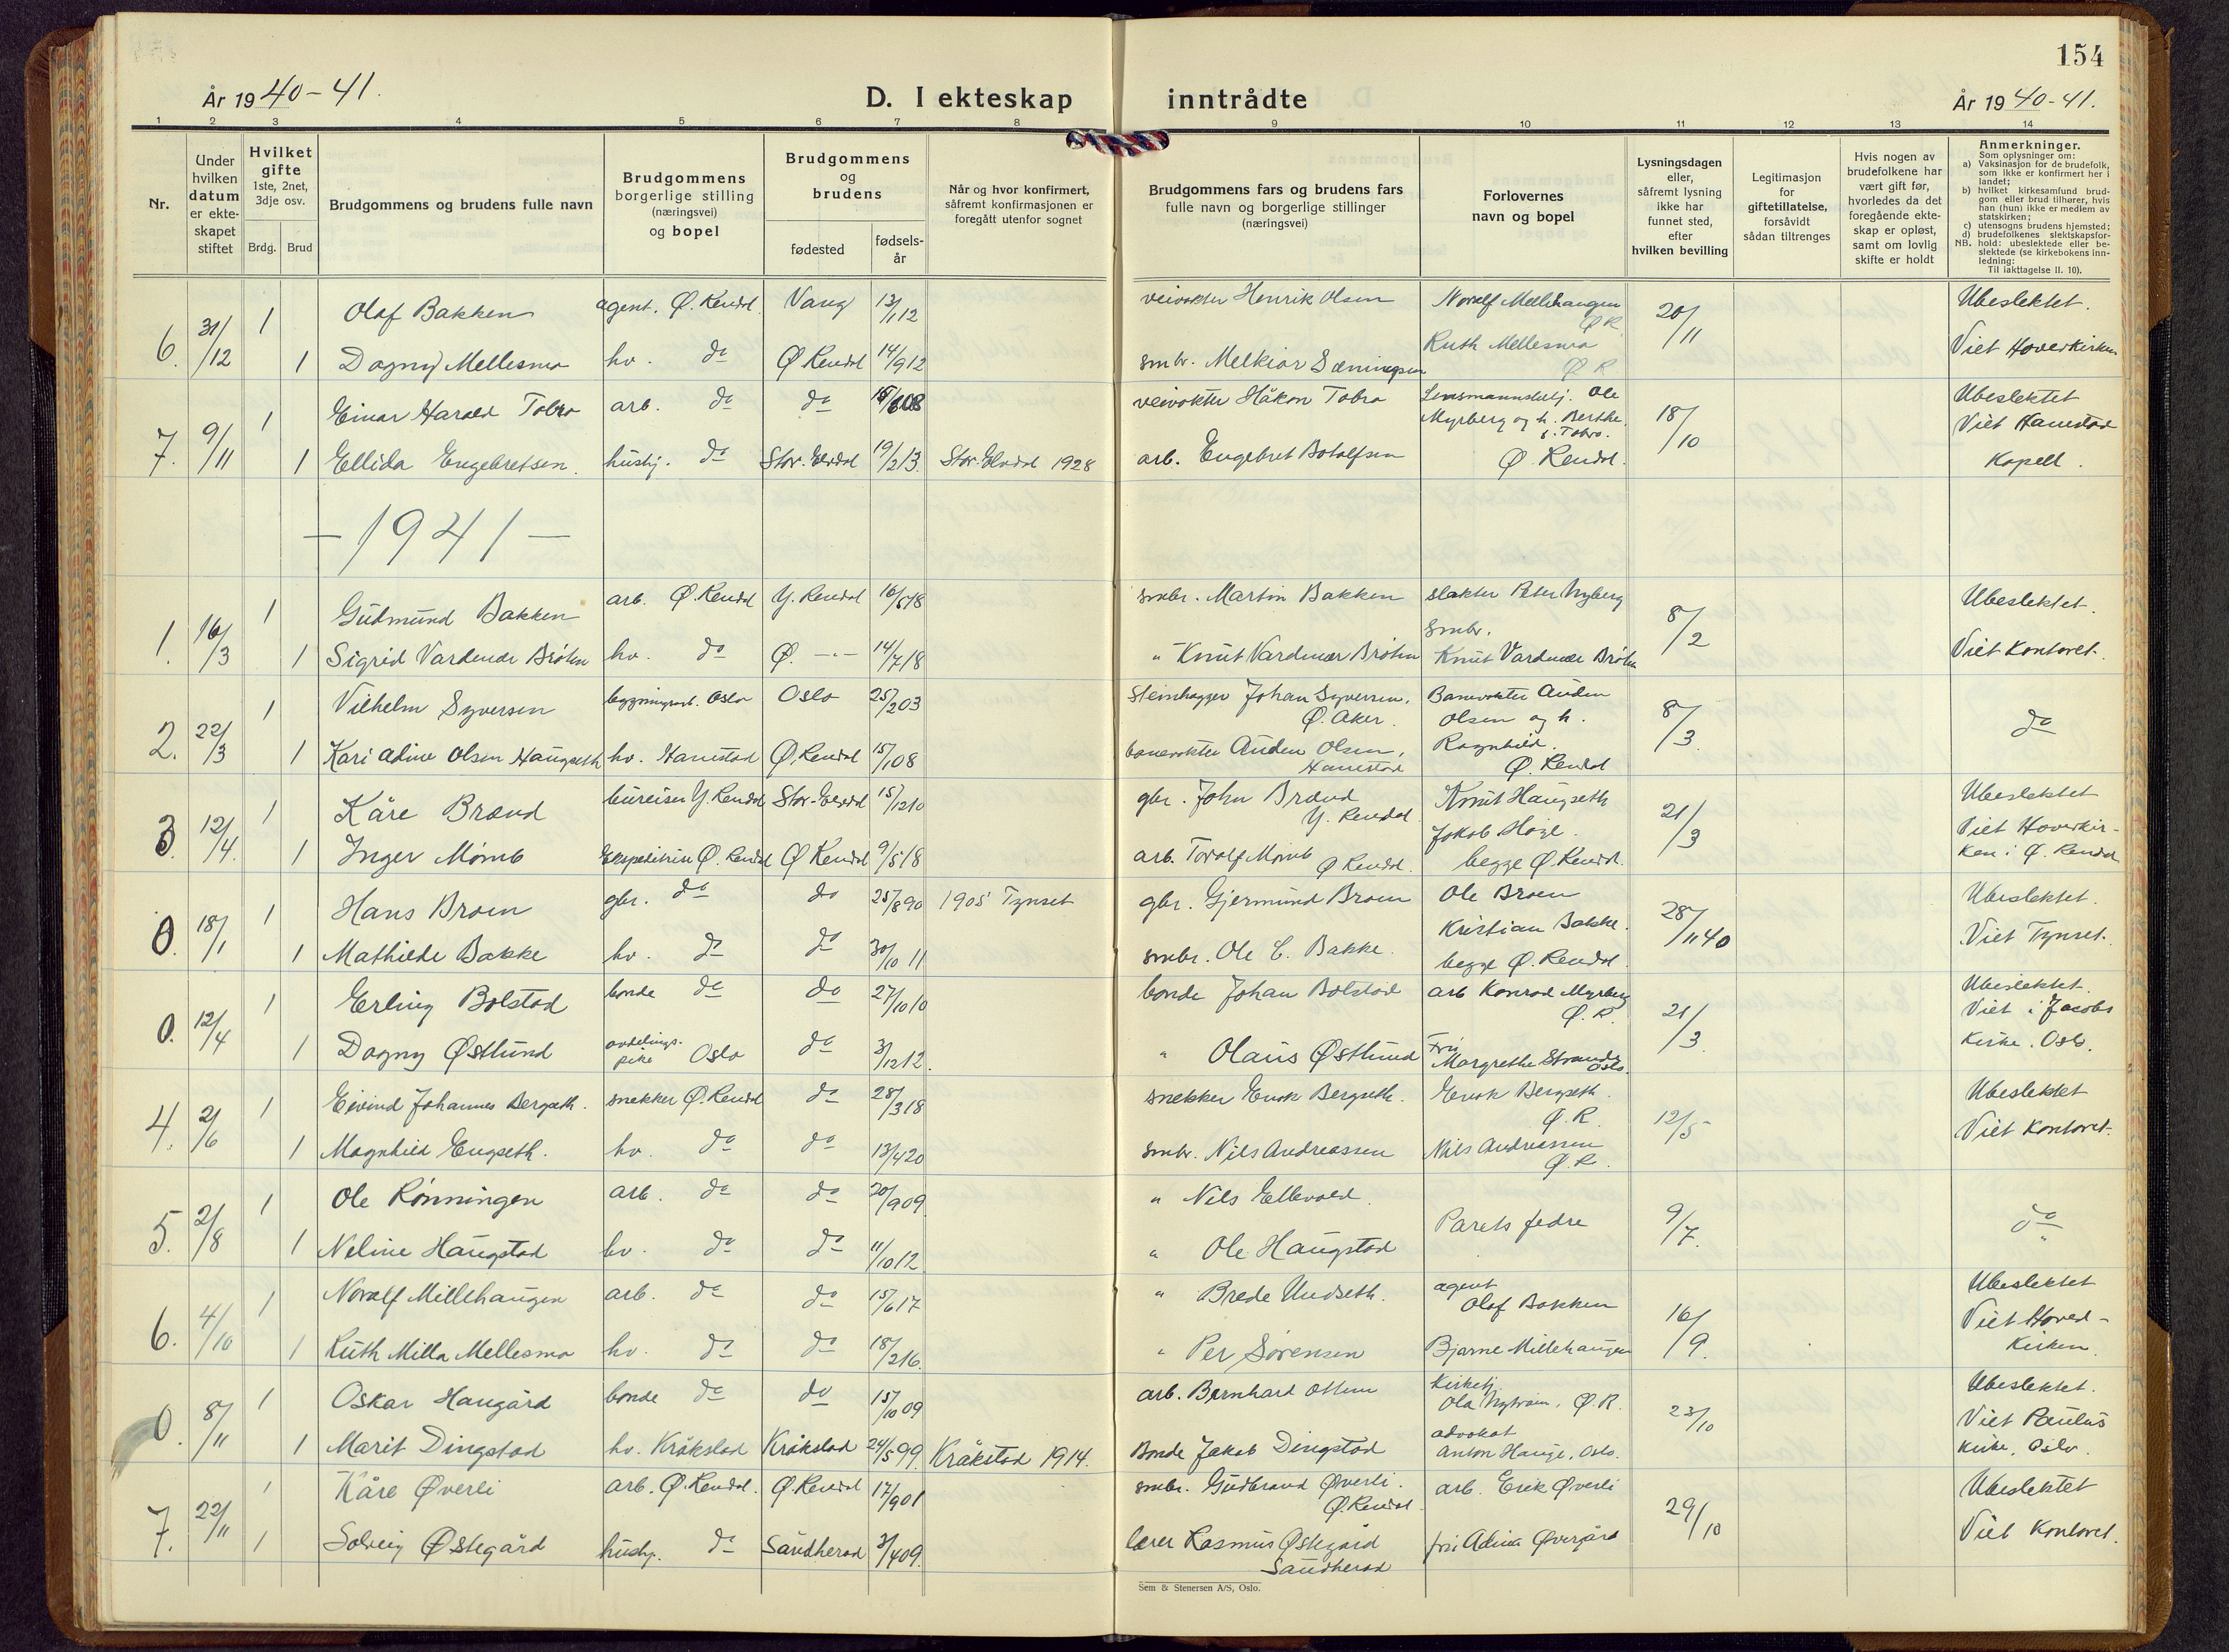 154
År 1940-41.
D. I ekteskap inntrådte
År 1940-41.
1 2 3 4 5 6 7 8 9 10 11 12 13 14
Nr.
Under hvilken datum er ekteskapet stiftet
Hvilket gifte
1ste, 2net, 3dje osv.
Brdg. Brud
Brudgommens og brudens fulle navn
Brudgommens borgerlige stilling (næringsvei) og bopel
Brudgommens og brudens
fødested
fødselsår
Når og hvor konfirmert, såfremt konfirmasjonen er foregått utenfor sognet
Brudgommens fars og brudens fars fulle navn og borgerlige stillinger (næringsvei)
Forlovernes navn og bopel
Lysningsdagen eller, såfremt lysning ikke har funnet sted, efter hvilken bevilling
Legitimasjon for giftetillatelse, forsåvidt sådan tiltrenges
Hvis nogen av brudefolkene har vært gift før, hvorledes da det foregående ekteskap er opløst, samt om lovlig skifte er holdt
Anmerkninger.
Som oplysninger om:
a) Vaksinasjon for de brudefolk, som ikke er konfirmert her i landet;
b) hvilket kirkesamfund brudgom eller brud tilhører, hvis han (hun) ikke er medlem av statskirken;
c) utensogns brudens hjemsted;
d) brudefolkenes slektskapsforhold: ubeslektede eller beslektede (se kirkebokens innledning:
NB. Til iakttagelse II. 10).
6. 31/12 1 Olaf Bakken agent. Ø. Rendal Vang 13/1 12 veivokter Henrik Olsen Noralf Mellehaugen Ø R. 20/11 Ubeslektet.
1 Dagny Mellesmo hv. do Ø Rendal 14/9 12 smbr. Melkior Ruth Mellesmo Ø R Viet Hovedkirken
7. 9/11 1 Einar Harald Tobro arb. do do veivokter Håkon Tobro Lensmannsbetj. Ole Myrberg og h. Berthe f. Tobro. 18/10 Ubeslektet
1 Ellida Engebretsen. hushj. do Stor-Elvdal 19/2 13 Stor-Elvdal 1928 arb. Engebret Botolfsen Ø. Rendal. Viet Hanestad Kapell.
– 1941 –
1. 16/3 1 Gudmund Bakken arb. Ø. Rendal Y. Rendal smbr. Martin Bakken slakter Peter Nyberg 8/2 Ubeslektet.
1 Sigrid Vardenær Bråten hv. do Ø. -"- 14/7 18 " Knut Vardenær Bråten smbr. Knut Vardenær Bråten Viet Kontoret.
2. 22/3 1 Vilhelm Syversen bygningsarb. Oslo Oslo 25/2 03 Steinhugger Johan Syversen, Ø. Aker. Banevokter Auden Olsen og h. 8/3 do
1 Kari Adine Olsen Haugseth hv. Hanestad Ø. Rendal 15/1 08 banevokter Auden Olsen, Hanestad Ragnhild. Ø. Rendal
3. 12/4. 1 Kåre Brænd bureiser Y. Rendal Stor-Elvdal 15/12 10 gbr. John Brænd Y. Rendal Knut Haugseth 21/3 Ubeslektet
1 Inger Momb Ekspeditrise Ø. Rendal Ø Rendal 9/5 18 arb. Torolf Momb Ø Rendal. Jakob Hage. begge Ø. Rendal. Viet Hovedkirken i Ø. Rendal
0. 18/1 1 Hans Broen gbr. do do 25/8 90 1905 Tynset gbr. Gjermund Broen Ole Broen 28/11 40 Ubeslektet.
1 Mathilde Bakke hv. do do 30/10 11 smbr. Ole E. Bakke. Kristian Bakke. begge Ø. Rendal. Viet Tynset.
0. 12/4 1 Erling Bolstad bonde do do 27/10 10 bonde Johan Bolstad arb Konrad Myrberg Ø. R. 21/3 Ubeslektet.
1 Dagny Østlund avdelingspike Oslo do 3/12 12. " Olaus Østlund Fru Margrethe Strande Oslo. Viet i Jacobs Kirke. Oslo.
4. 2/6 1 Eivind Johannes Bergseth. snekker Ø. Rendal do 28/3 18 snekker Enok Bergseth. Enok Bergseth. Ø. R. 12/5 Ubeslektet
1 Magnhild Engseth. hv. do do 13/4 20 smbr. Nils Andreassen Nils Andreassen Ø. R. Viet Kontoret.
5. 2/8 1 Ole Rønningen arb. do do 20/9 09 " Nils Ellevold Parets fedre 9/7. do
1 Neline Haugstad hv. do do 11/10 12 " Ole Haugstad
6. 4/10 1 Noralf Millehaugen arb. do do 15/6 17 " Brede Undseth. agent Olaf Bakken 16/9. Ubeslektet
1 Ruth Milla Mellesmo hv. do do 18/2 16. " Per Sørensen Bjarne Millehaugen Viet Hovedkirken
0. 8/11 1 Oskar Haugård bonde do do 15/10 09 arb. Bernhard Ottem Kirketj. Ola Nytrøen, Ø. R. 23/10 Ubeslektet.
1 Marit Dingstad hv. Kråkstad Kråkstad 24/5 99. Kråkstad 1914. Bonde Jakob Dingstad advokat Anton Hauge, Oslo. Viet Paulus Kirke, Oslo.
7. 22/11 1 Kåre Øverli arb. Ø. Rendal. Ø. Rendal 17/9 01 smbr. Gudbrand Øverli. Ø. Rendal arb. Erik Øverli 29/10 Ubeslektet
1 Solveig Østegård hushj. do Sauherad 3/4 09. lærer Rasmus Østegård Sauherad fru Adina Øvergård Viet Kontoret.
Sem & Stenersen A/S, Oslo.